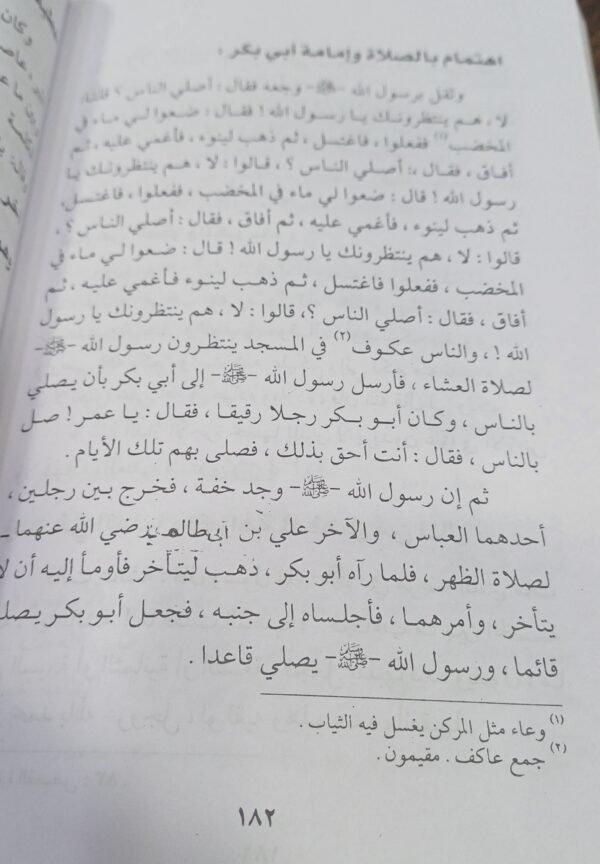 اهتمام بالصلاة وإمامة أبي بكر :
وثقل برسول الله -ﷺ- وجعه فقال : أصلي الناس ؟ قلنا :
لا ، هم ينتظرونك يا رسول الله ! فقال : ضعوا لي ماء في
المخضب (١) ففعلوا ، فاغتسل ، ثم ذهب لينوء ، فأغمي عليه ، ثم
أفاق ، فقال : أصلي الناس ؟ ، قالوا : لا ، هم ينتظرونك يا
رسول الله ! قال : ضعوا لي ماء في المخضب ، ففعلوا ، فاغتسل ،
ثم ذهب لينوء ، فأغمي عليه ، ثم أفاق ، فقال : أصلي الناس ؟ ،
قالوا : لا ، هم ينتظرونك يا رسول الله ! قال : ضعوا لي ماء في
المخضب ، ففعلوا فاغتسل ، ثم ذهب لينوء فأغمي عليه ، ثم
أفاق ، فقال : أصلي الناس ؟، قالوا : لا ، هم ينتظرونك يا رسول
الله ! ، والناس عكوف (٢) في المسجد ينتظرون رسول الله -ﷺ-
لصلاة العشاء ، فأرسل رسول الله -ﷺ- إلى أبي بكر بأن يصلي
بالناس ، وكان أبو بكر رجلا رقيقا ، فقال : يا عمر ! صل
بالناس ، فقال : أنت أحق بذلك ، فصلى بهم تلك الأيام .
ثم إن رسول الله -ﷺ- وجد خفة ، فخرج بين رجلين ،
أحدهما العباس ، والآخر علي بن أبي طالب رضي الله عنهما ـ
لصلاة الظهر ، فلما رآه أبو بكر ، ذهب ليتأخر فأومأ إليه أن لا
يتأخر ، وأمرهما ، فأجلساه إلى جنبه ، فجعل أبو بكر يصلي
قائما ، ورسول الله -ﷺ- يصلي قاعدا .
(١) وعاء مثل المركن يغسل فيه الثياب .
(٢) جمع عاكف . مقيمون .
١٨٢